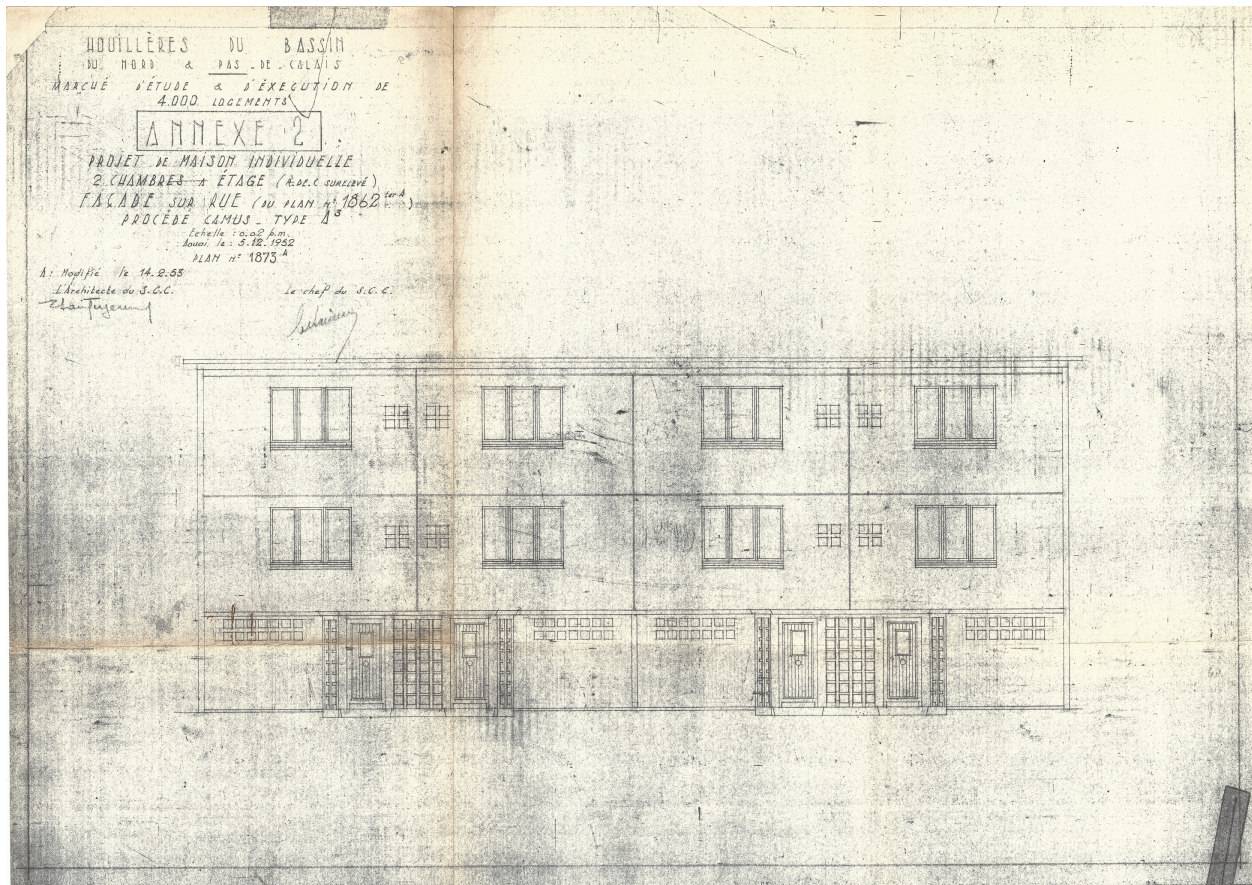 HOUILLÈRES DU BASSIN
DU NORD & PAS-DE-CALAIS
MARCHÉ D'ÉTUDE & D'ÉXECUTION DE
4.000 LOGEMENTS
ANNEXE 2
PROJET DE MAISON INDIVIDUELLE
2 CHAMBRES A ÉTAGE (R.DE.C SURELEVÉ)
FAÇADE SUR RUE (DU PLAN N° 1862 ter A)
PROCÉDÉ CAMUS _ TYPE A³
Echelle : 0.02 p.m.
Douai, le : 5.12.1952
PLAN N° 1873 A
A: Modifié le 14.2.53
L'Architecte du S.C.C. Le chef du S.C.C.